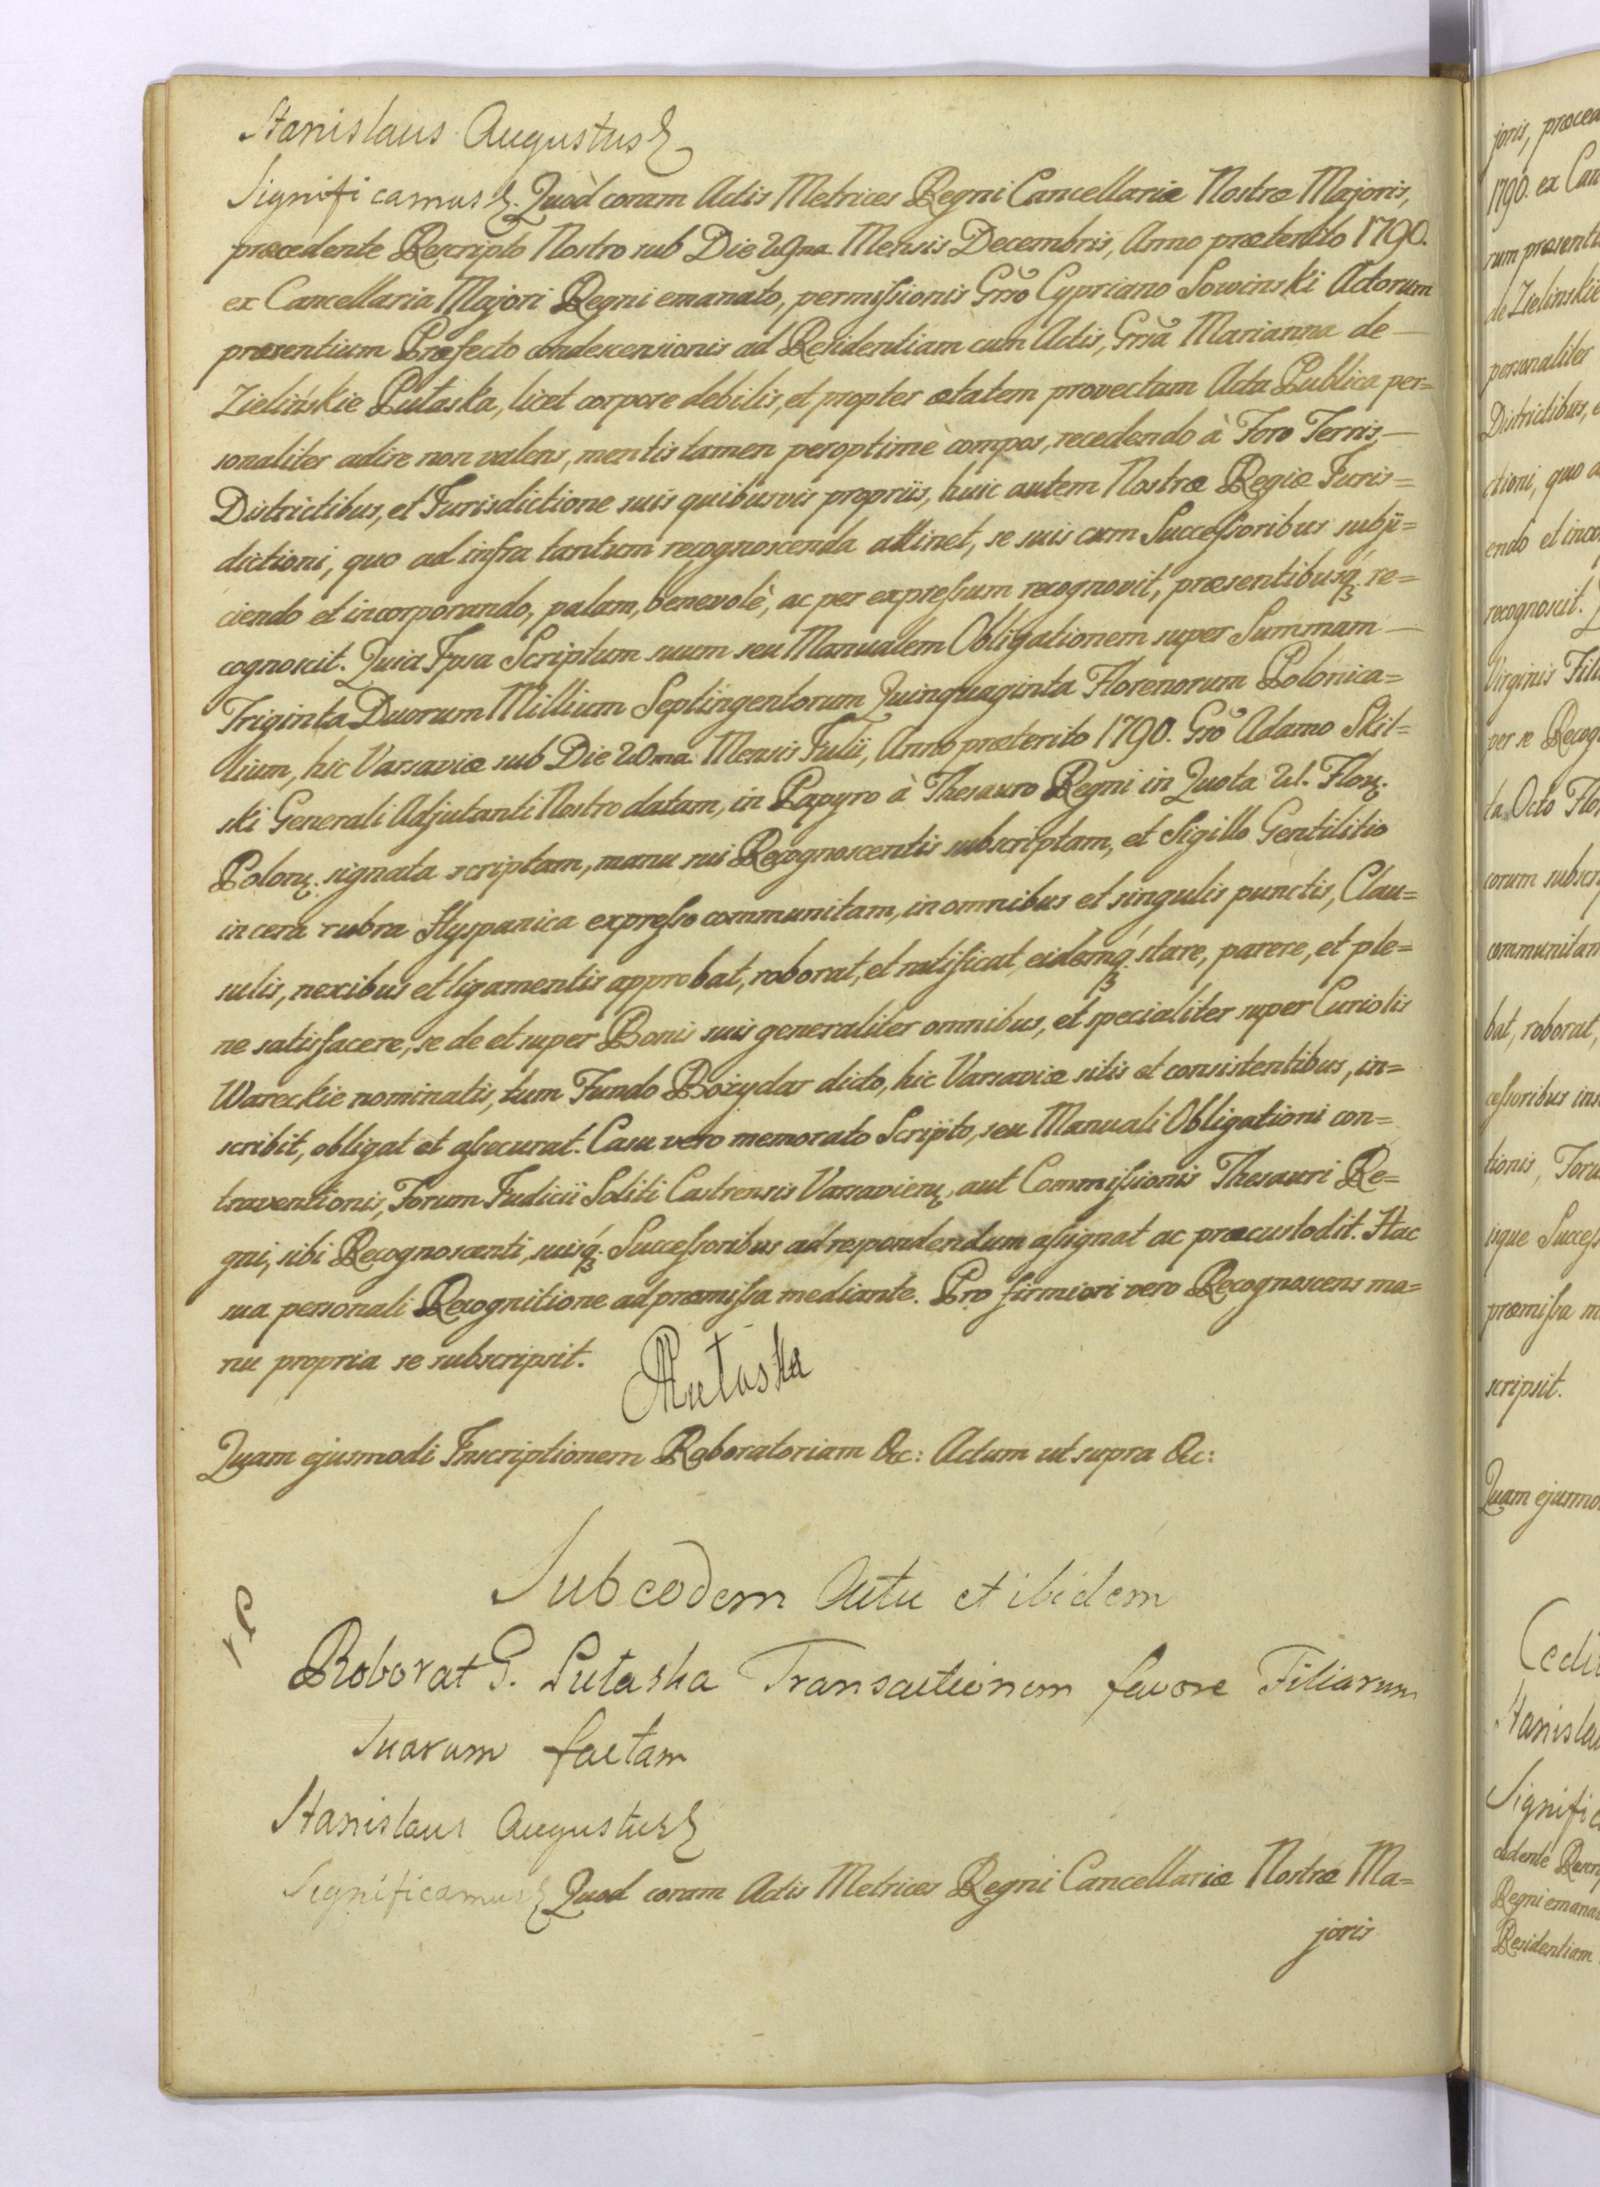 Stanislaus Augustus &
Significamus &. Quòd coram Actis Metrices Regni Cancellariæ Nostræ Majoris,
præcedente Rescripto Nostro sub Die 29na Mensis Decembris, Anno præterito 1790.
ex Cancellaria Majori Regni emanato, permissionis Grso Cypriano Sowinski Actorum
præsentium Præfecto condescensionis ad Residentiam cum Actis, Grsa Marianna de
Zielińskie Putaska, licet corpore debilis, et propter ætatem provectam Acta Publica per=
sonaliter adire non valens, mentis tamen peroptimè compos, recedendo à Foro Terris,
Districtibus, et Jurisdictione suis quibusvis propriis, huic autem Nostræ Regiæ Juris=
dictioni, quo ad infra tantum recognoscenda attinet, se suis cum Successoribus subji=
ciendo et incorporando, palam, benevolè, ac per expressum recognovit, præsentibusq; re=
cognoscit. Quia Ipsa Scriptum suum seu Manualem Obligationem super Summam
Triginta Duorum Millium Septingentorum Quinquaginta Florenorum Polonica=
lium, hic Varsaviæ sub Die 20ma Mensis Julii, Anno præterito 1790. Gso Adamo Skil=
ski Generali Adjutanti Nostro datam, in Papyro à Thesauro Regni in Quota Flor.
Polon. signata scriptam, manu sui Recognoscentis subscriptam, et Sigillo Gentilitio
in cera rubra Hyspanica expresso communitam, in omnibus et singulis punctis, Clau=
sulis, nexibus et ligamentis approbat, roborat, et ratificat, eidemq; stare, parere, et ple=
ne satisfacere, se de et super Bonis suis generaliter omnibus, et specialiter super Curiolis
Wareckie nominatis, tum Fundo Bożydar dicto, hic Varsaviæ sitis et consistentibus, in=
scribit, obligat et assecurat. Casu vero memorato Scripto, seu Manuali Obligationi con=
traventionis, Forum Judicii Soliti Castrensis Varsavien. aut Commissionis Thesauri Re=
gni, sibi Recognoscenti, suisq; Successoribus ad respondendum assignat ac præcustodit. Hac
sua personali Recognitione ad præmissa mediante. Pro firmiori vero Recognoscens ma=
nu propria se subscripsit.
Quam ejusmodi Inscriptionem Roboratoriam &c: Actum ut supra &c:
Sub eodem Actu et ibidem
Roborat G. Putaska Transactionem favore Filiarum
Suarum factam
Stanislaus Augustus &
Significamus & Quod coram Actis Metrices Regni Cancellariæ Nostræ Ma=
joris
joris,
1790. ex Can
rum præsenti
de Zielinskie
personaliter
Districtibus, e
ctioni, quo a
recognoscit.
Virginis Fili
per se Recog
ta Octo Flo
corum subscr
communitam
bat, roborat,
cessoribus
tionis,
præmissa m
scripsit.
Quam ejusmo
Stanislau
Signific
Regni emana
Residentiam